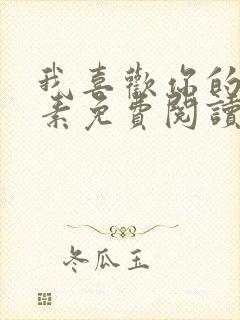 我喜歡你的
素免費閱讀
冬瓜玉